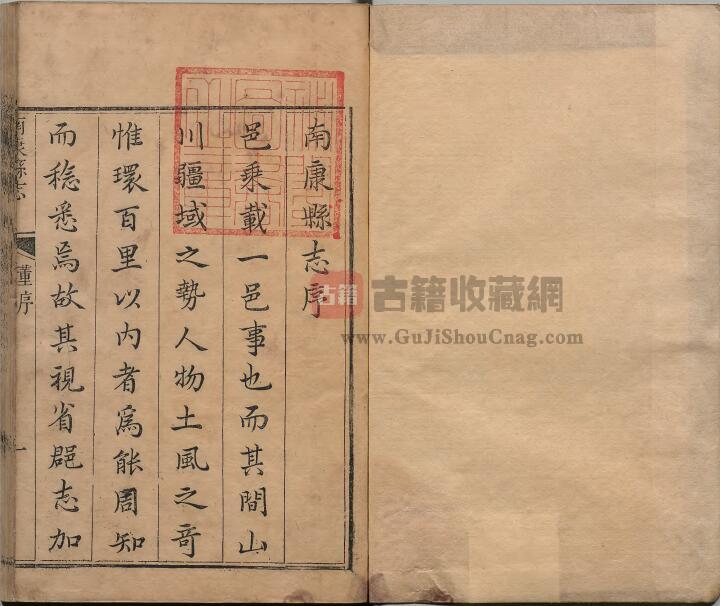 南康縣志序
邑乘載一邑事也而其間山
川疆域之勢人物土風之竒
惟環百里以内者爲能周知
而稔悉焉故其視省郡志加
南康縣志
董序
一
古籍
古籍收藏網
www.GuJiShouCnag.com